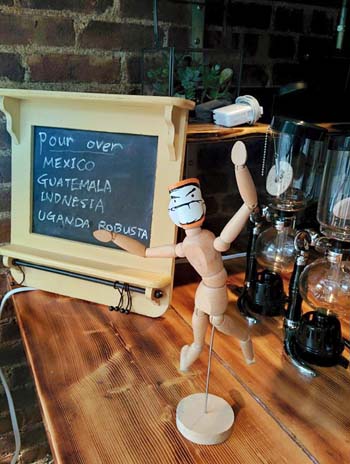 Pour over
MEXICO
GUATEMALA
INDNESIA
UGANDA ROBUSTA